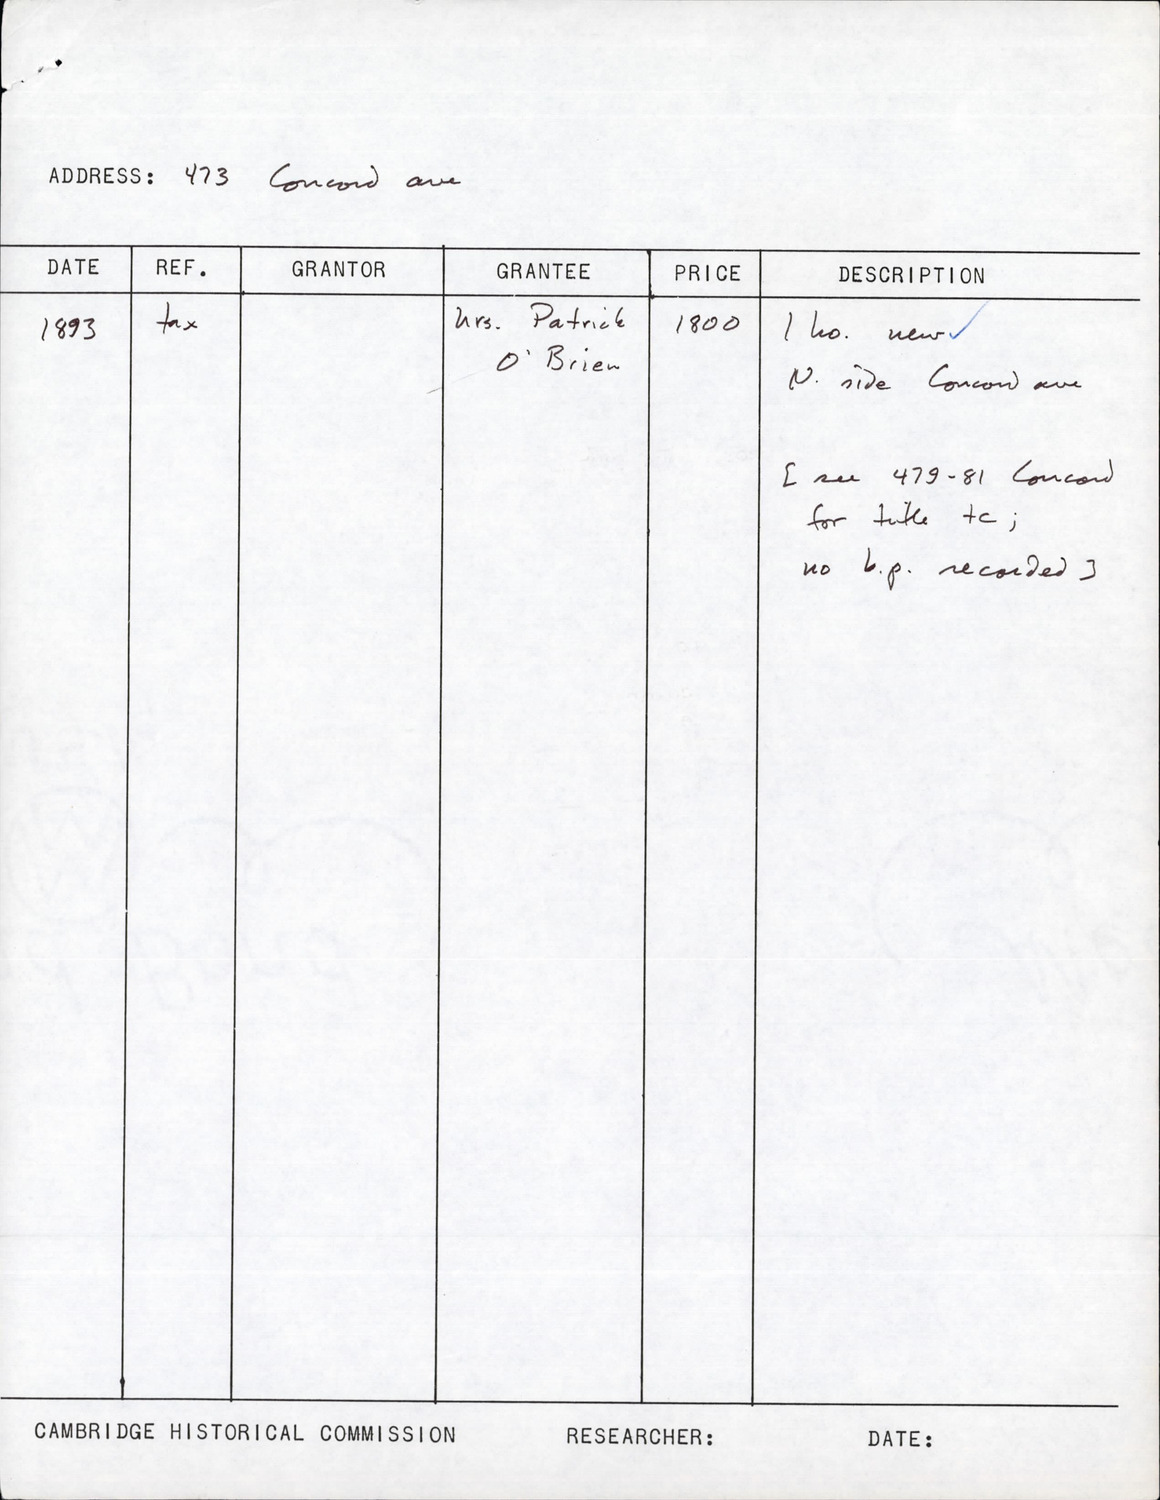 ADDRESS: 473 Concord ave
DATE REF. GRANTOR GRANTEE PRICE DESCRIPTION
1893 tax Mrs. Patrick 1800 1 ho. new✓
O'Brien
N. side Concord ave
[ see 479-81 Concord
for title tc;
no b.p. recorded ]
CAMBRIDGE HISTORICAL COMMISSION RESEARCHER: DATE: